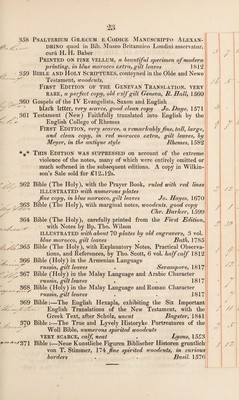 23
358 PSALTERIUM GRÆCUM E CODICE MANUSCRIPTO ALEXAN-
DRINO quod in Bib. Museo Britannico Londini asservatur,
curâ H. H. Baber
PRINTED ON FINE VELLUM, a beautiful specimen of modern
printing, in blue morocco extra, gilt leaves 1812
359 BIBLE AND HOLY SCRIPTURES, conteyned in the Olde and Newe
Testament, woodcuts.
FIRST EDITION OF THE GENEVAN TRANSLATION, VERY
RARE, a perfect copy, old calf gilt Geneva, R. Hall, 1560
360 Gospels of the IV Evangelists, Saxon and English
black letter, very scarce, good clean copy Jo. Daye, 1571
361 Testament (New) Faithfully translated into English by the
English College of Rhemes
FIRST EDITION, very scarce, a remarkably fine, tall, large,
and clean copy, in red morocco extra, gilt leaves, by
Meyer, in the antique style Rhemes, 1582
*** THIS EDITION WAS SUPPRESSED on account of the extreme
violence of the notes, many of which were entirely omitted or
much softened in the subsequent editions. A copy in Wilkin-
son's Sale sold for £12..12s.
362 Bible (The Holy), with the Prayer Book, ruled with red lines
ILLUSTRATED with numerous plates
fine copy, in blue morocco, gilt leaves Jo. Hayes, 1670
363 Bible (The Holy), with marginal notes, woodcuts, good copy
Chr. Barker, 1599
364 Bible (The Holy), carefully printed from the First Edition,
with Notes by Bp. Tho. Wilson
ILLUSTRATED with about 70 plates by old engravers, 3 vol.
blue morocco, gilt leaves Bath, 1785
365 Bible (The Holy), with Explanatory Notes, Practical Observa-
tions, and References, by Tho. Scott, 6 vol. half calf 1812
366 Bible (Holy) in the Armenian Language
russia, gilt leaves Serampore, 1817
367 Bible (Holy) in the Malay Language and Arabic Character
russia, gilt leaves 1817
368 Bible (Holy) in the Malay Language and Roman Character
russia, gilt leaves 1817
369 Bible:—The English Hexapla, exhibiting the Six Important
English Translations of the New Testament, with the
Greek Text, after Scholz, uncut Bagster, 1841
370 Bible:—The True and Lyvely Historyke Purtreatures of the
Woll Bible, numerous spirited woodcuts
VERY SCARCE, calf, neat Lyons, 1553
371 Bible:—Neue Kunstliche Figuren Biblischer Historien gruntlich
von T. Stimmer, 174 fine spirited woodcuts, in curious
borders Basil. 1576